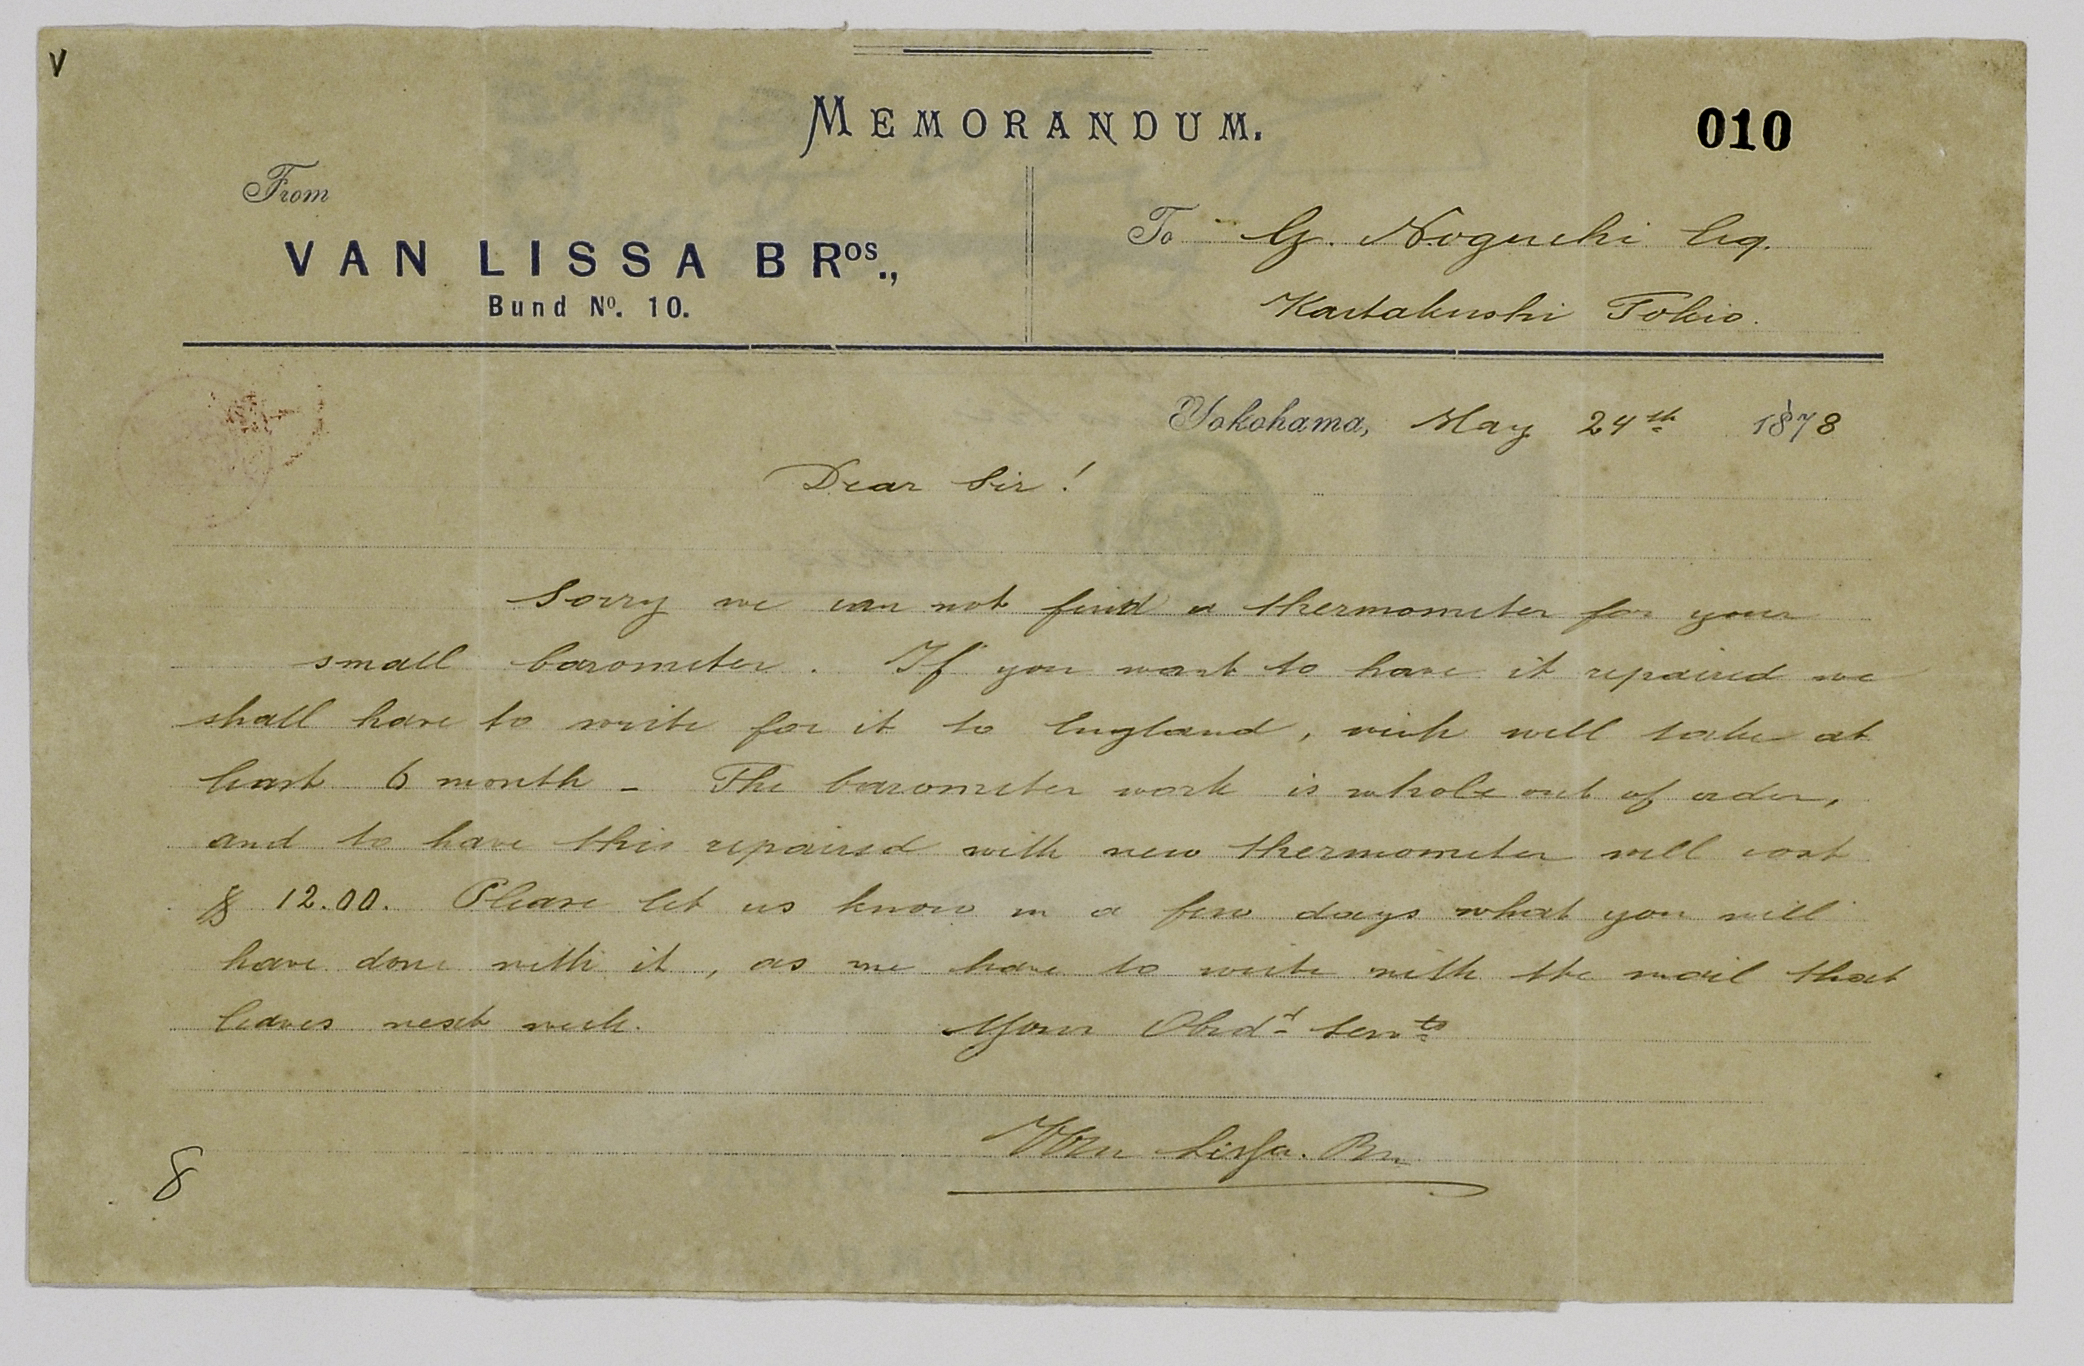 V
MEMORANDUM.
010
From
VAN LISSA BROS.,
Bund No. 10.
To G. Noguchi Esq.
Kaitakushi Tokio.
Yokohama, May 24th 1878
Dear Sir!
Sorry we can not find a thermometer for your
small barometer. If you want to have it repaired we
shall have to write for it to England, wich will take at
least 6 month - The barometer work is whole out of order,
and to have this repaired with new thermometer will cost
$ 12.00. Please let us know in a few days what you will
have done with it, as we have to write with the mail that
leaves next week.
Your Obedt Servts
Van Lissa Bros
8